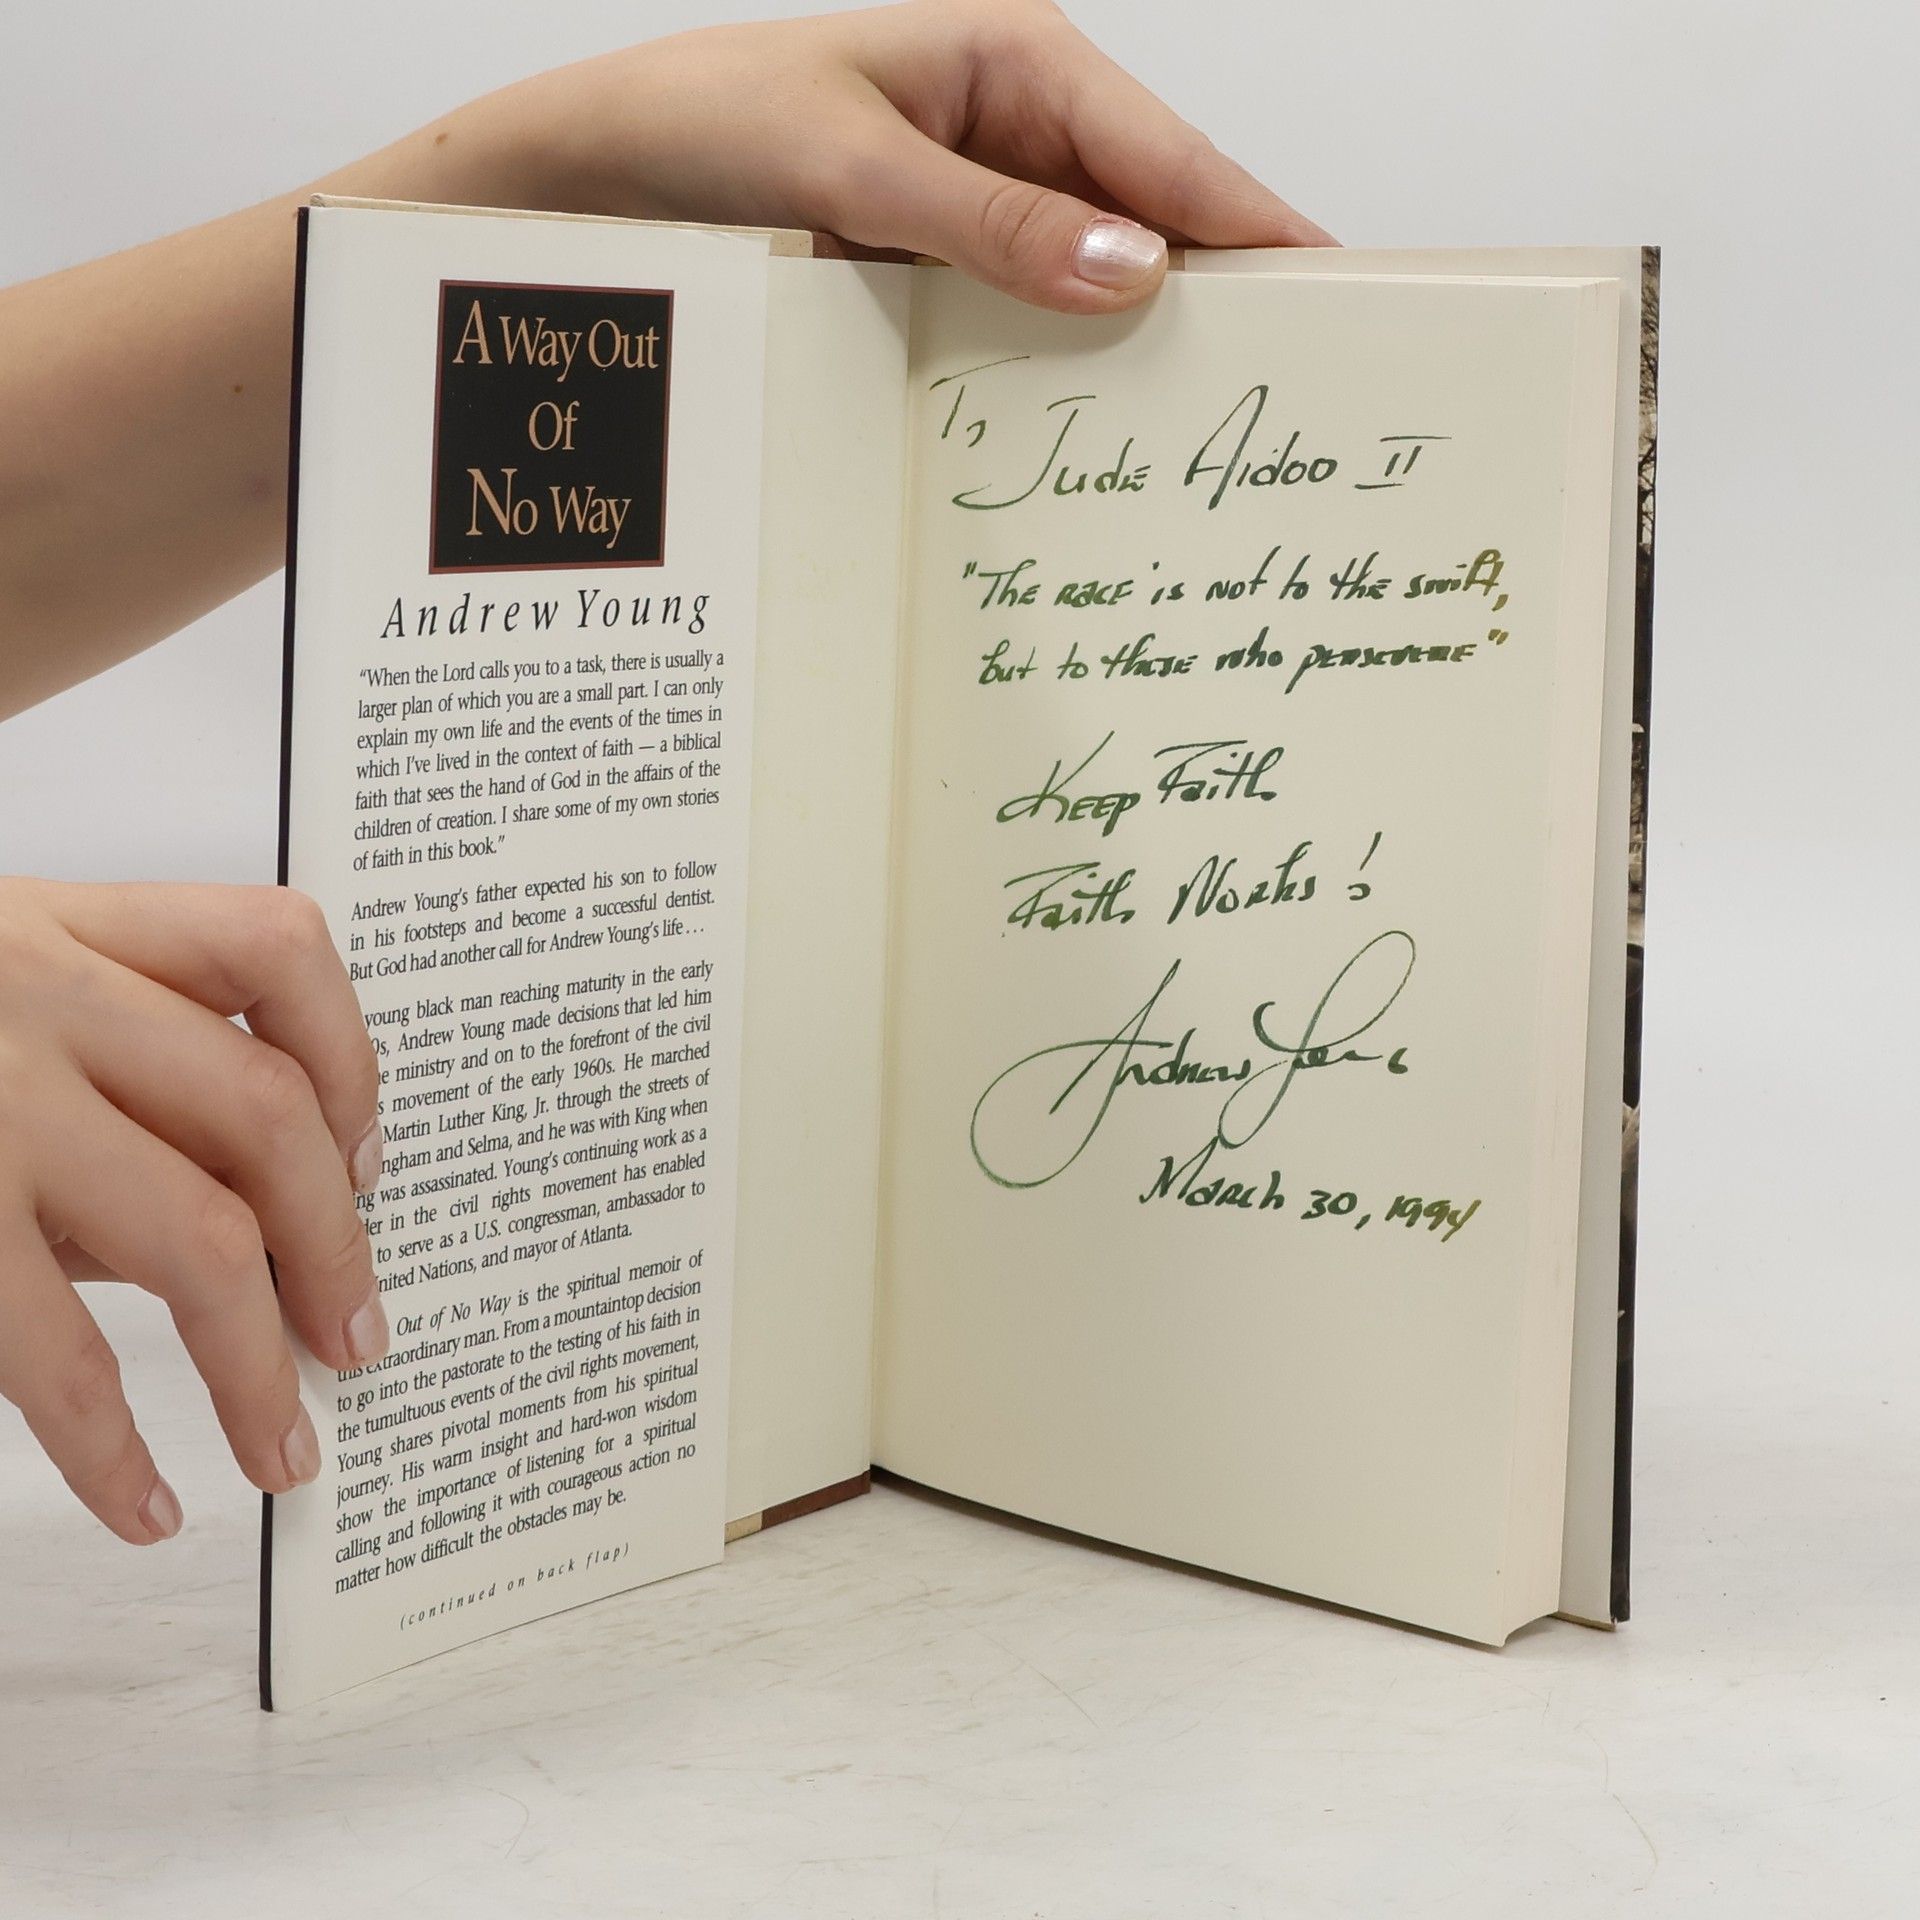 A Way Out
Of
No Way
Andrew Young
“When the Lord calls you to a task, there is usually a
larger plan of which you are a small part. I can only
explain my own life and the events of the times in
which I've lived in the context of faith — a biblical
faith that sees the hand of God in the affairs of the
children of creation. I share some of my own stories
of faith in this book.”
Andrew Young's father expected his son to follow
in his footsteps and become a successful dentist.
But God had another call for Andrew Young's life…
young black man reaching maturity in the early
0s, Andrew Young made decisions that led him
e ministry and on to the forefront of the civil
s movement of the early 1960s. He marched
Martin Luther King, Jr. through the streets of
ngham and Selma, and he was with King when
ing was assassinated. Young's continuing work as a
der in the civil rights movement has enabled
to serve as a U.S. congressman, ambassador to
nited Nations, and mayor of Atlanta.
Out of No Way is the spiritual memoir of
this extraordinary man. From a mountaintop decision
to go into the pastorate to the testing of his faith in
the tumultuous events of the civil rights movement,
Young shares pivotal moments from his spiritual
journey. His warm insight and hard-won wisdom
show the importance of listening for a spiritual
calling and following it with courageous action no
matter how difficult the obstacles may be.
(continued on back flap)
To
Jude Aidoo II
"The race is not to the swift,
but to those who persevere"
Keep Faith
Faith Works!
Andrew Young
March 30, 1994